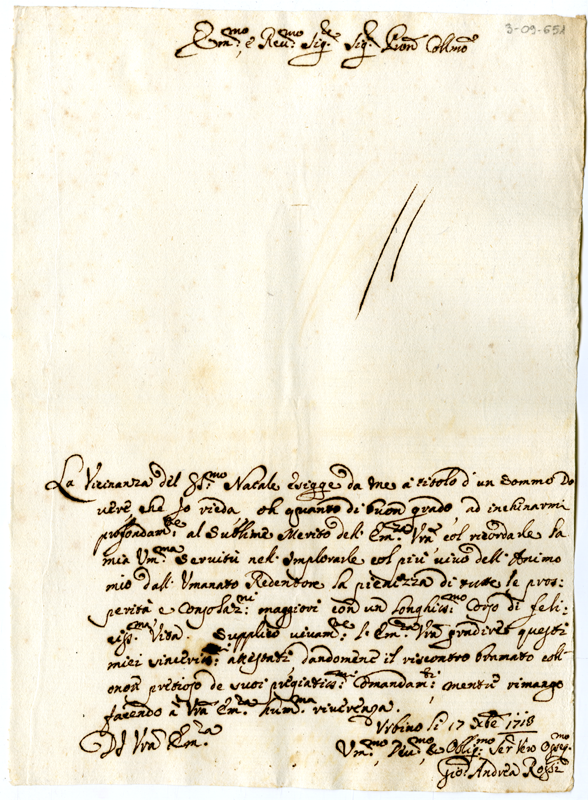 3-09-651
Em.mo e Reu.mo Sig.re Sig. Pron Collmo
La Vicinanza del SS.mo Natale esigge da me a titolo d'un sommo Do
uere che Io rieda oh quanto di buon grado ad inchinarmi
profondam.te al Sublime Merito dell' Em.za Vra col ricordarle la
mia Um.ma Seruitù nell' Implorarle col più uiuo dell' Animo
mio dall' Umanato Redentore la pienezza di tutte le pros=
perità e Consolaz.ni maggiori con un longhiss.mo Corso di feli=
ciss.ma Vita. Supplico uiuam.te l'Em.za Vra gradire questi
miei sinceriss.mi attestati dandomene il riscontro bramato coll
onor pretioso de suoi pregiatiss.mi Comandam.ti, mentre rimango
facendo a Vra Em.za hum.ma riuerenza.
Di Vra Em.za
Urbino li 17 Xbre 1718
Um.mo Deu.mo & Oblig.mo Ser Vero Osseq.mo
Gio: Andrea Rossi